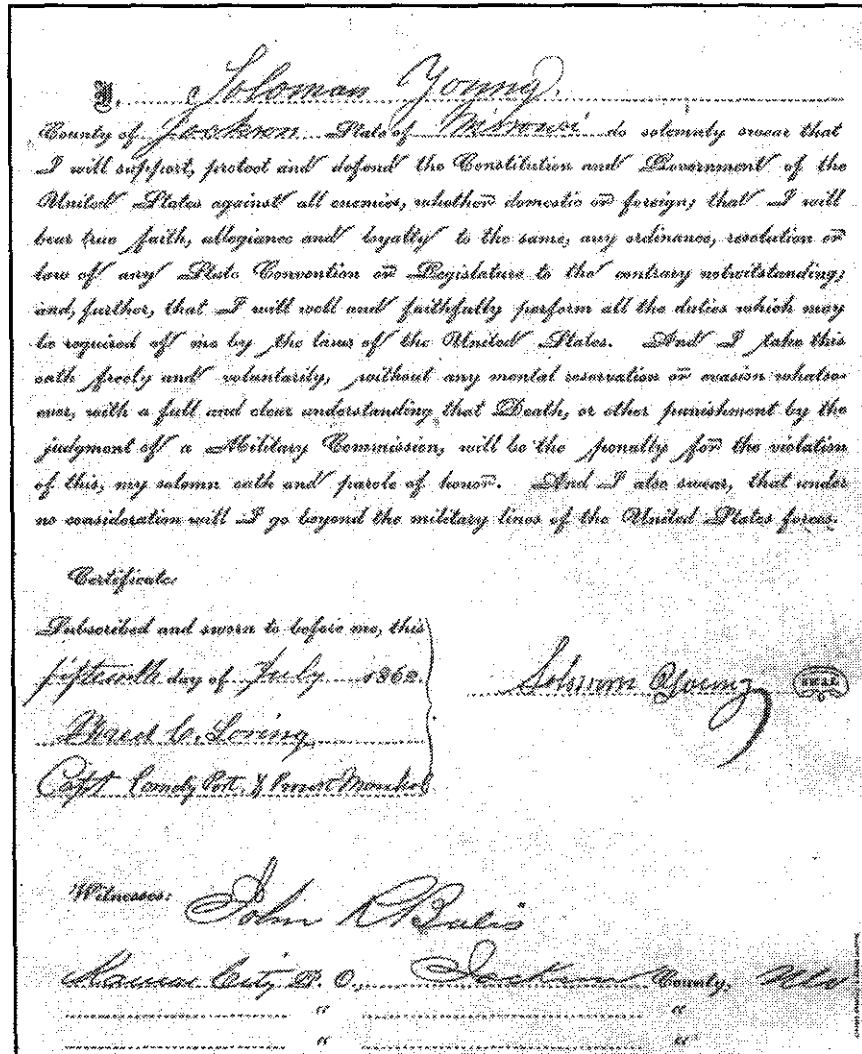 I, Soloman Young.
County of Jackson State of Missouri do solemnly swear that
I will support, protect and defend the Constitution and Government of the
United States against all enemies, whether domestic or foreign; that I will
bear true faith, allegiance and loyalty to the same, any ordinance, resolution or
law of any State Convention or Legislature to the contrary notwitstanding;
and, further, that I will well and faithfully perform all the duties which may
be required of me by the laws of the United States. And I take this
oath freely and voluntarily, without any mental reservation or evasion whatso-
ever, with a full and clear understanding that Death, or other punishment by the
judgment of a Military Commission, will be the penalty for the violation
of this, my solemn oath and parole of honor. And I also swear, that under
no consideration will I go beyond the military lines of the United States forces.
Certificate:
Subscribed and sworn to before me, this
fifteenth day of July 1862.
Solomon Young SEAL
C. Loring
Capt Comdg Post & Provost Marshal
Witnesses: John R Bulis
Kansas City P. O., Jackson County, Mo
" "
" "